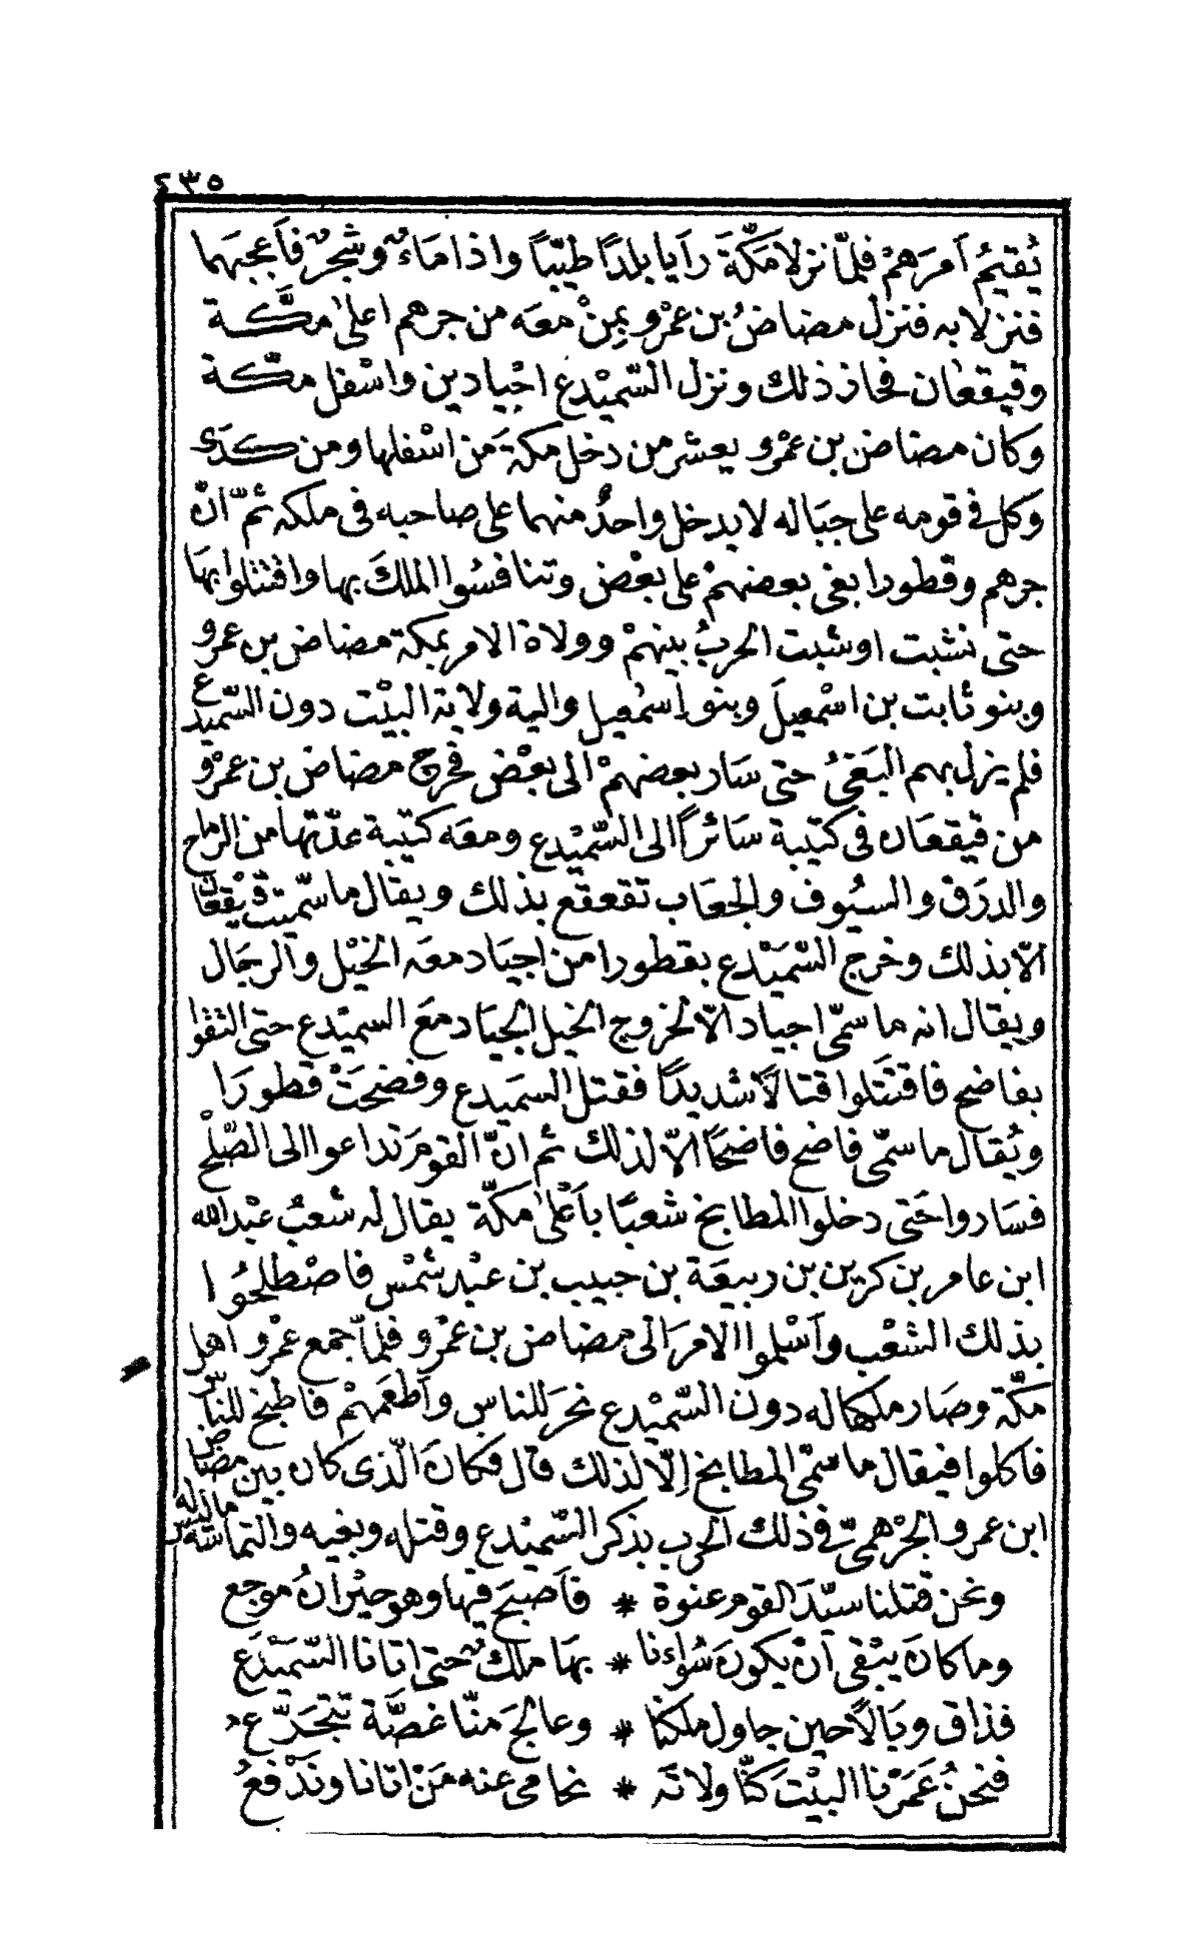 ٤٣٥
يُقيمُ اَمرَهمْ فلمّا نزلا مَكّةَ رأيا بلدًا طيّبًا واذا مَاءٌ وشجرٌ فاَعجبَهما
فنزلا به فنزل مضاضُ بن عمْرو بِمنْ معَه من جرهم اعلىٰ مكَّـة
وقيقعٰان فحاز ذلك ونزل السّميْدع اجْيادين واسْفل مكّـة
وكان مضاض بن عمْرو يعشر من دخل مكةَ من اسْفلها ومن كـدَى
وكل فى قومه على جبَاله لا يدخل واحدٌ منهما على صاحبه فى ملكه ثمّ انّ
جرهم وقطورا بغى بعضهمْ على بعْض وتنافسُوا الملكَ بها واقتتلوا بهَا
حتى نشبت اوشبت الحربُ بينهمْ وولاة الامر بمكة مضاض بن عمرو
وبنو ثابت بن اسْمعيلَ وبنو اِسمٰعيل والية ولاية البيْت دون السّميدع
فلم يزل بهم البَغىُ حتى سَار بعضهمْ الى بعْض فخرج مضاض بن عمْرو
من قيقعَان فى كتيبة سَائرًا الى السّميْدع ومعَه كتيبة عدّتها من الرماح
والدرَق والسيُوف والجعَاب تقعقع بذلك ويقال ما سمّيت قيْقعَان
الاّ بذلك وخرج السّميَدع بقطورا من اجيَاد معَه الخيْل والرجَال
ويقال انه ما سمّى اجياد الاّ لخروج الخيل الجيَاد معَ السميدع حتى التقوا
بفاضح فاقتتَلوا قتالًا شديدًا فقتل السمَيدع وفضحَتْ قطورَا
ويُقال ما سمّى فاضح فاضحًا الاّ لذلك ثم انّ القومَ تداعوا الى الصّلْح
فسَاروا حَتى دخلوا المطابخ شعبًا باَعْلىٰ مكّة يقال له شعبُ عبْد الله
ابن عامر بن كريْن بن ربيعَة بن حبيب بن عبْد شمْس فاصْطلحُوا
بذلك الشعْب وأسْلموا الامرَ الى مضاض بن عمْرو فلمّا جمع عمْرو اَهل
مكّة وصَار ملكها له دون السّميْدع نحرَ للناس واَطعَمهمْ فاطبخ للناس
فاكلوا فيقال ما سمّى المطابخ اِلّا لذلك قال فكانَ الّذى كان بين مضاض
ابن عمرو الجرْهمىّ فى ذلك الحرب يذكر السّميْدع وقتله وبغيه والتماسَه ما ليس له
ونحن قتلنا سيّدَ القوم عنوة * فاَصبحَ فيها وهو حيْرانُ موجع
وما كانَ يبْغى اَنْ يكونَ سُواءنا * بهَا ملكٌ حتى اتانا السّميْدَع
فذاق وبَالًا حين حاول ملكنَا * وعالجَ منّا غصَّة تتجَرّع
فنحنُ عَمَرْنا البيْتَ كنّا ولاتَه * نحامى عنه مَنْ اتانا وندْفعُ